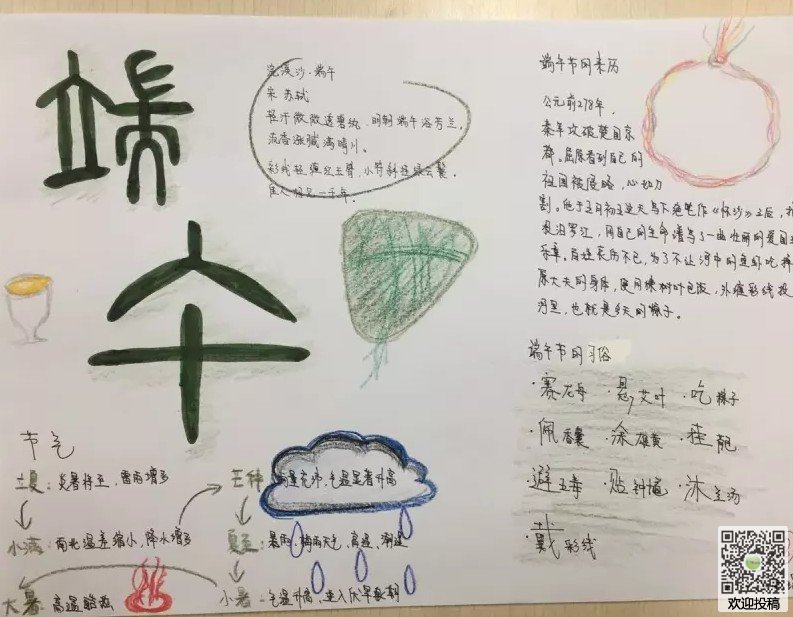 端
午
浣溪沙·端午
宋 苏轼
轻汗微微透碧纨,明朝端午浴芳兰。
流香涨腻满晴川。
彩线轻缠红玉臂,小符斜挂绿云鬟。
佳人相见一千年。
端午节的来历
公元前278年,
秦军攻破楚国京
都。屈原看到自己的
祖国被侵略,心如刀
割。他于五月初五这天写下绝笔作《怀沙》之后,抱
投汨罗江,用自己的生命谱写了一曲壮丽的爱国主
乐章。百姓哀伤不已,为了不让河中的鱼虾吃掉
原大夫的身体,便用楝树叶包饭,外缠彩线投
河里,也就是今天的粽子。
端午节的习俗
·赛龙舟 ·悬艾叶 ·吃粽子
·佩香囊 ·涂雄黄 ·挂
避五毒 ·贴钟馗 ·沐兰汤
·戴彩线
节气
立夏:炎暑将至,雷雨增多
小满:南北温差缩小,降水增多
芒种 气温显著升高
夏至:暴雨、梅雨天气,高温、潮湿
小暑:气温升高,进入伏旱
大暑:高温酷热
欢迎投稿